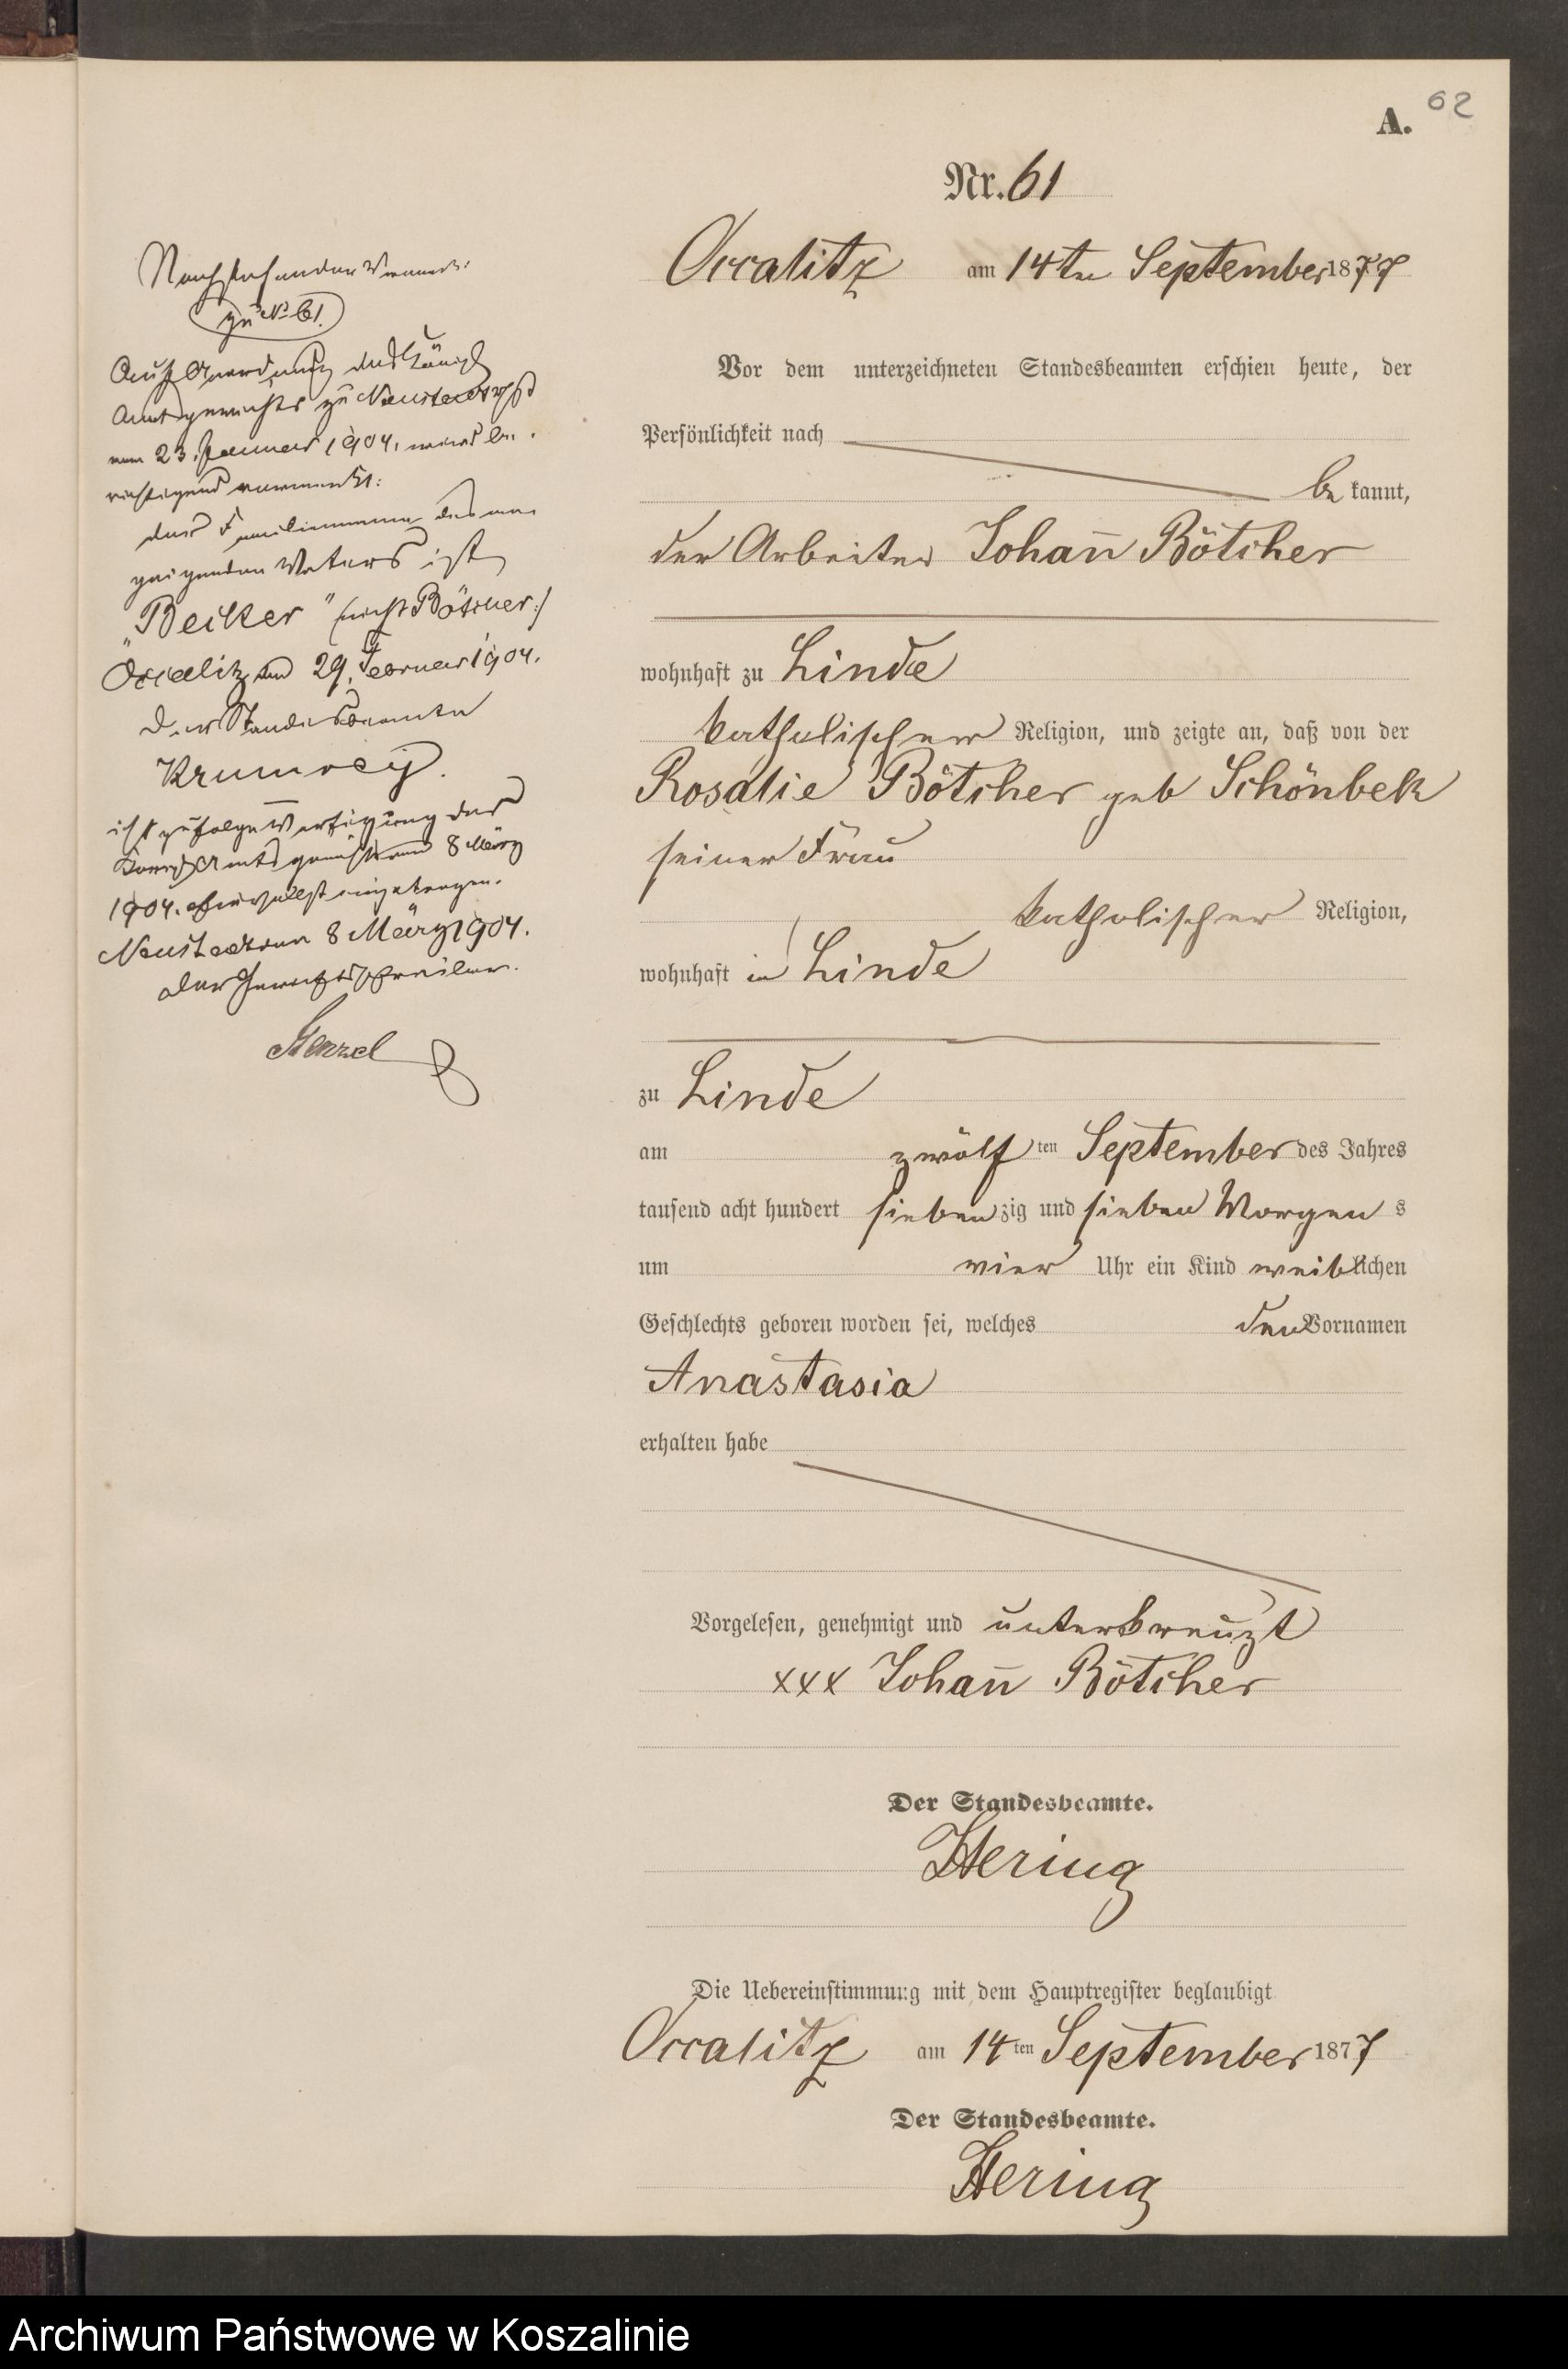 A. 62
Nr. 61
Occalitz am 14ten September 1877
Vor dem unterzeichneten Standesbeamten erschien heute, der
Persönlichkeit nach
be kannt,
der Arbeiter Johann Bötcher
wohnhaft zu Linde
katholischer Religion, und zeigte an, daß von der
Rosalie Bötcher geb Schönbek
seiner Frau
katholischer Religion,
wohnhaft in Linde
zu Linde
am zwölf ten September des Jahres
tausend acht hundert sieben zig und sieben Morgen s
um vier Uhr ein Kind weiblichen
Geschlechts geboren worden sei, welches den Vornamen
Anastasia
erhalten habe
Vorgelesen, genehmigt und unterkreuzt
xxx Johann Bötcher
Der Standesbeamte.
Hering
Die Uebereinstimmung mit dem Hauptregister beglaubigt
Occalitz am 14ten September 1877
Der Standesbeamte.
Hering
Nachstehender Vermerk:
zu No 61.
Auf Anordnung des Königl
Amtsgerichts zu Neustadt
vom 23. Januar 1904. wird be-
richtigend vermerkt:
der Familienname des an-
zeigenden Vaters ist
"Becker" (nicht Bötcher:/
Occalitz, den 29. Februar 1904.
Der Standesbeamte
Krumrey.
ist zufolge Verfügung des
Königl Amtsgerichts vom 8 März
1904. hierselbst eingetragen.
Neustadt den 8 März 1904.
Der Gerichtsschreiber.
Archiwum Państwowe w Koszalinie